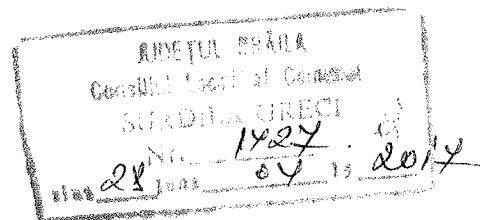 JUDEȚUL BRĂILA
Consiliul Local al Comunei
SURDILA GRECI
Nr. 1427
ziua 28 luna 04 19 2017